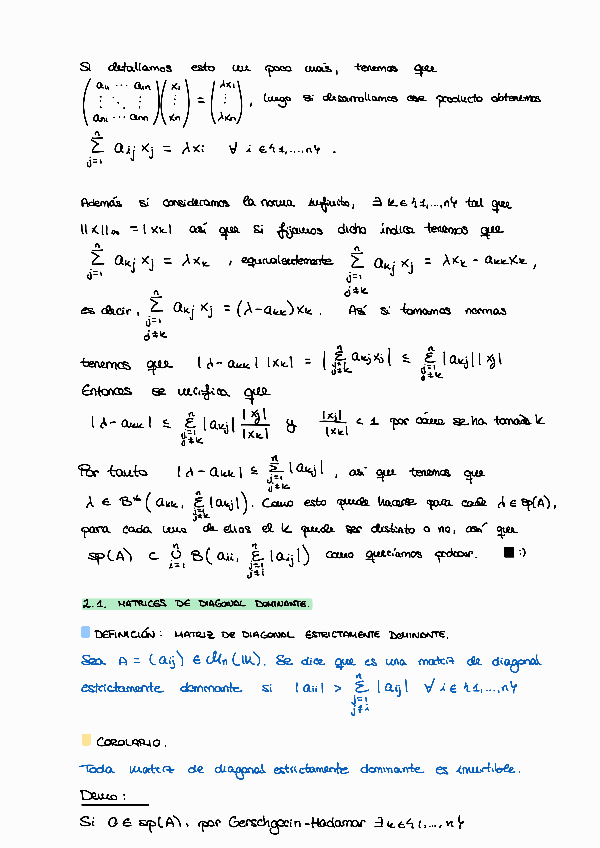 Si detallamos esto un poco más, tenemos que
( a₁₁ ⋯ a₁ₙ ; ⋮ ⋱ ⋮ ; aₙ₁ ⋯ aₙₙ )( x₁ ; ⋮ ; xₙ ) = ( λx₁ ; ⋮ ; λxₙ ) , luego si desarrollamos ese producto obtenemos
∑_{j=1}^{n} aᵢⱼ xⱼ = λxᵢ ∀ i ∈ {1,...,n} .
Además si consideramos la norma infinito, ∃ k ∈ {1,...,n} tal que
||x||∞ = |xₖ| así que si fijamos dicho índice tenemos que
∑_{j=1}^{n} aₖⱼ xⱼ = λxₖ , equivalentemente ∑_{j=1, j≠k}^{n} aₖⱼ xⱼ = λxₖ - aₖₖxₖ ,
es decir, ∑_{j=1, j≠k}^{n} aₖⱼ xⱼ = (λ-aₖₖ)xₖ . Así si tomamos normas
tenemos que |λ-aₖₖ| |xₖ| = |∑_{j=1, j≠k}^{n} aₖⱼxⱼ| ≤ ∑_{j=1, j≠k}^{n} |aₖⱼ| |xⱼ|
Entonces se verifica que
|λ-aₖₖ| ≤ ∑_{j=1, j≠k}^{n} |aₖⱼ| |xⱼ|/|xₖ| y |xⱼ|/|xₖ| < 1 por cómo se ha tomado k
Por tanto |λ-aₖₖ| ≤ ∑_{j=1, j≠k}^{n} |aₖⱼ| , así que tenemos que
λ ∈ B( aₖₖ, ∑_{j=1, j≠k}^{n} |aₖⱼ| ). Como esto puede hacerse para cada λ ∈ sp(A),
para cada uno de ellos el k puede ser distinto o no, así que
sp(A) ⊂ ∪_{i=1}^{n} B( aᵢᵢ, ∑_{j=1, j≠i}^{n} |aᵢⱼ| ) como queríamos probar. ■ :)
2.1. MATRICES DE DIAGONAL DOMINANTE.
DEFINICIÓN: MATRIZ DE DIAGONAL ESTRICTAMENTE DOMINANTE.
Sea A = (aᵢⱼ) ∈ Mₙ(K). Se dice que es una matriz de diagonal
estrictamente dominante si |aᵢᵢ| > ∑_{j=1, j≠i}^{n} |aᵢⱼ| ∀ i ∈ {1,...,n}
COROLARIO.
Toda matriz de diagonal estrictamente dominante es invertible.
Demo:
Si 0 ∈ sp(A), por Gerschgorin-Hadamar ∃ k ∈ {1,...,n}